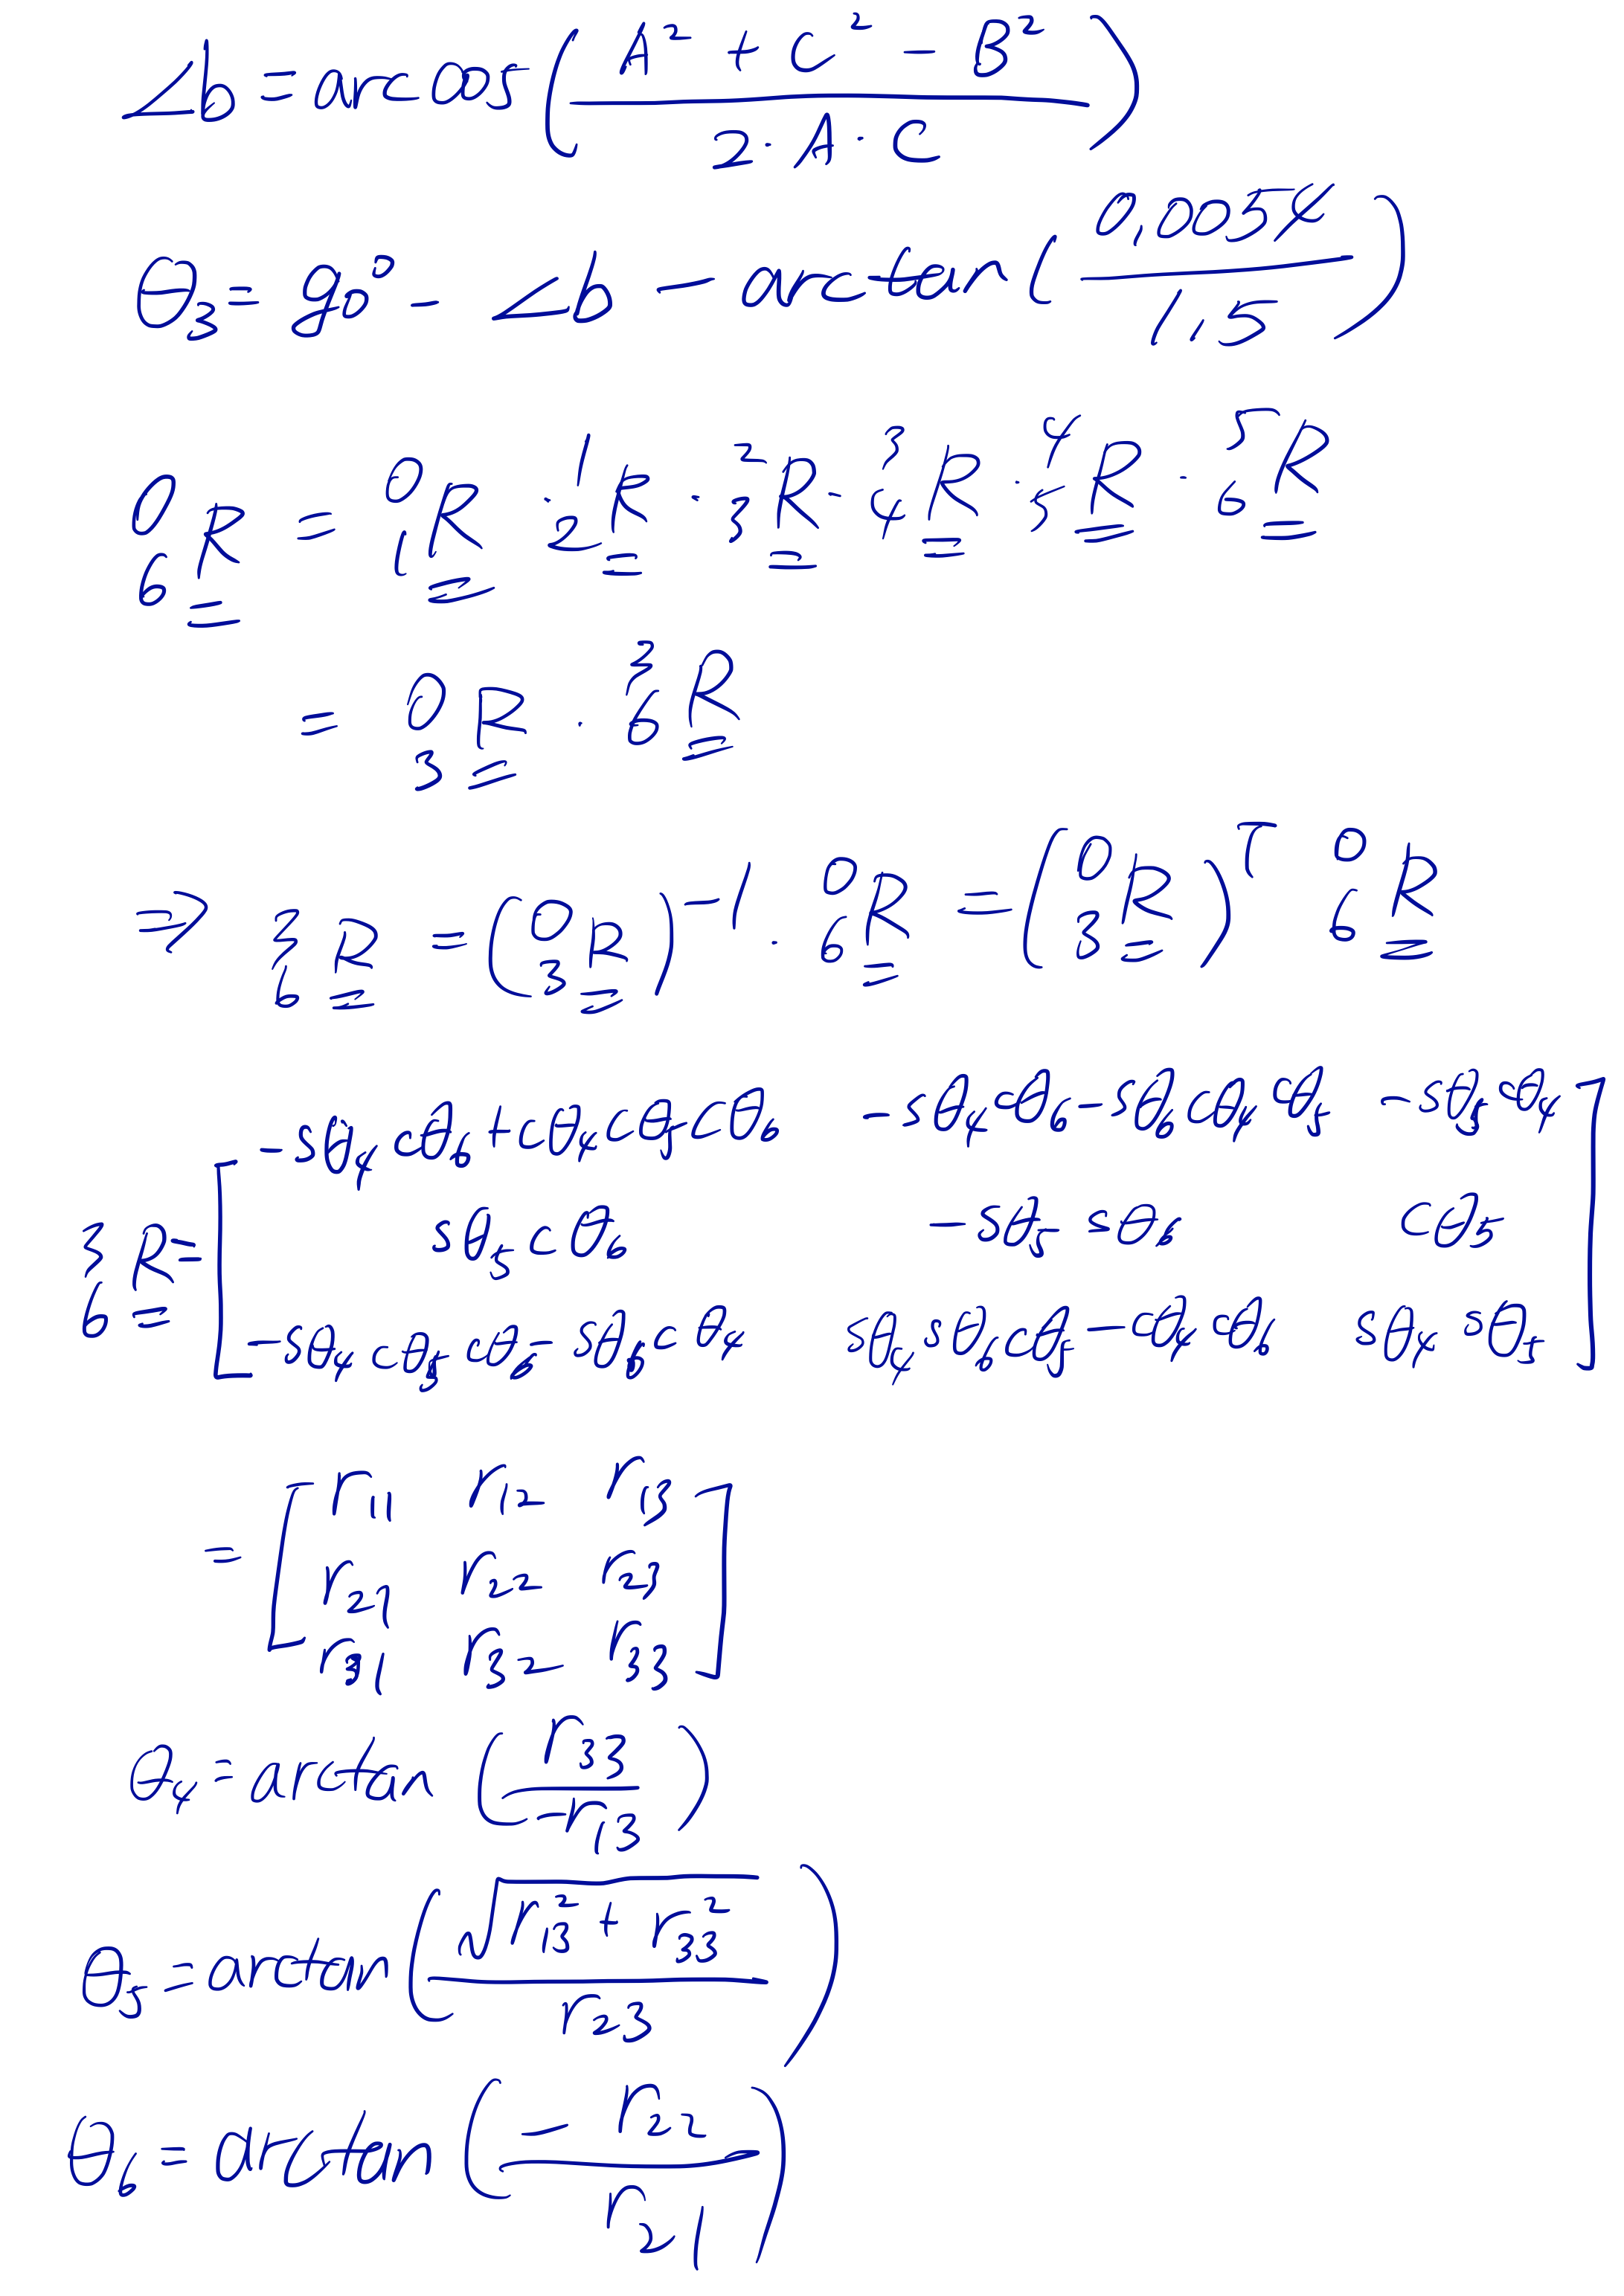 ∠b = arccos( (A² + C² - B²) / (2 · A · C) )
θ₃ = 90° - ∠b - arctan( 0,0054 / 1,5 )
⁰₆R = ⁰₁R · ¹₂R · ²₃R · ³₄R · ⁴₅R · ⁵₆R
= ⁰₃R · ³₆R
⇒ ³₆R = (⁰₃R)⁻¹ · ⁰₆R = (⁰₃R)ᵀ ⁰₆R
-sθ₄ cθ₆ + cθ₄ cθ₅ cθ₆   -sθ₄ cθ₆ - sθ₆ cθ₄ cθ₅   -sθ₅ cθ₄
³₆R = [ sθ₅ cθ₆   -sθ₅ sθ₆   cθ₅ ]
-sθ₄ cθ₅ cθ₆ - sθ₆ cθ₄   sθ₄ sθ₆ cθ₅ - cθ₄ cθ₆   sθ₄ sθ₅
r₁₁ r₁₂ r₁₃
= [ r₂₁ r₂₂ r₂₃ ]
r₃₁ r₃₂ r₃₃
θ₄ = arctan( r₃₃ / -r₁₃ )
θ₅ = arctan( √(r₁₃² + r₃₃²) / r₂₃ )
θ₆ = arctan( -r₂₂ / r₂₁ )